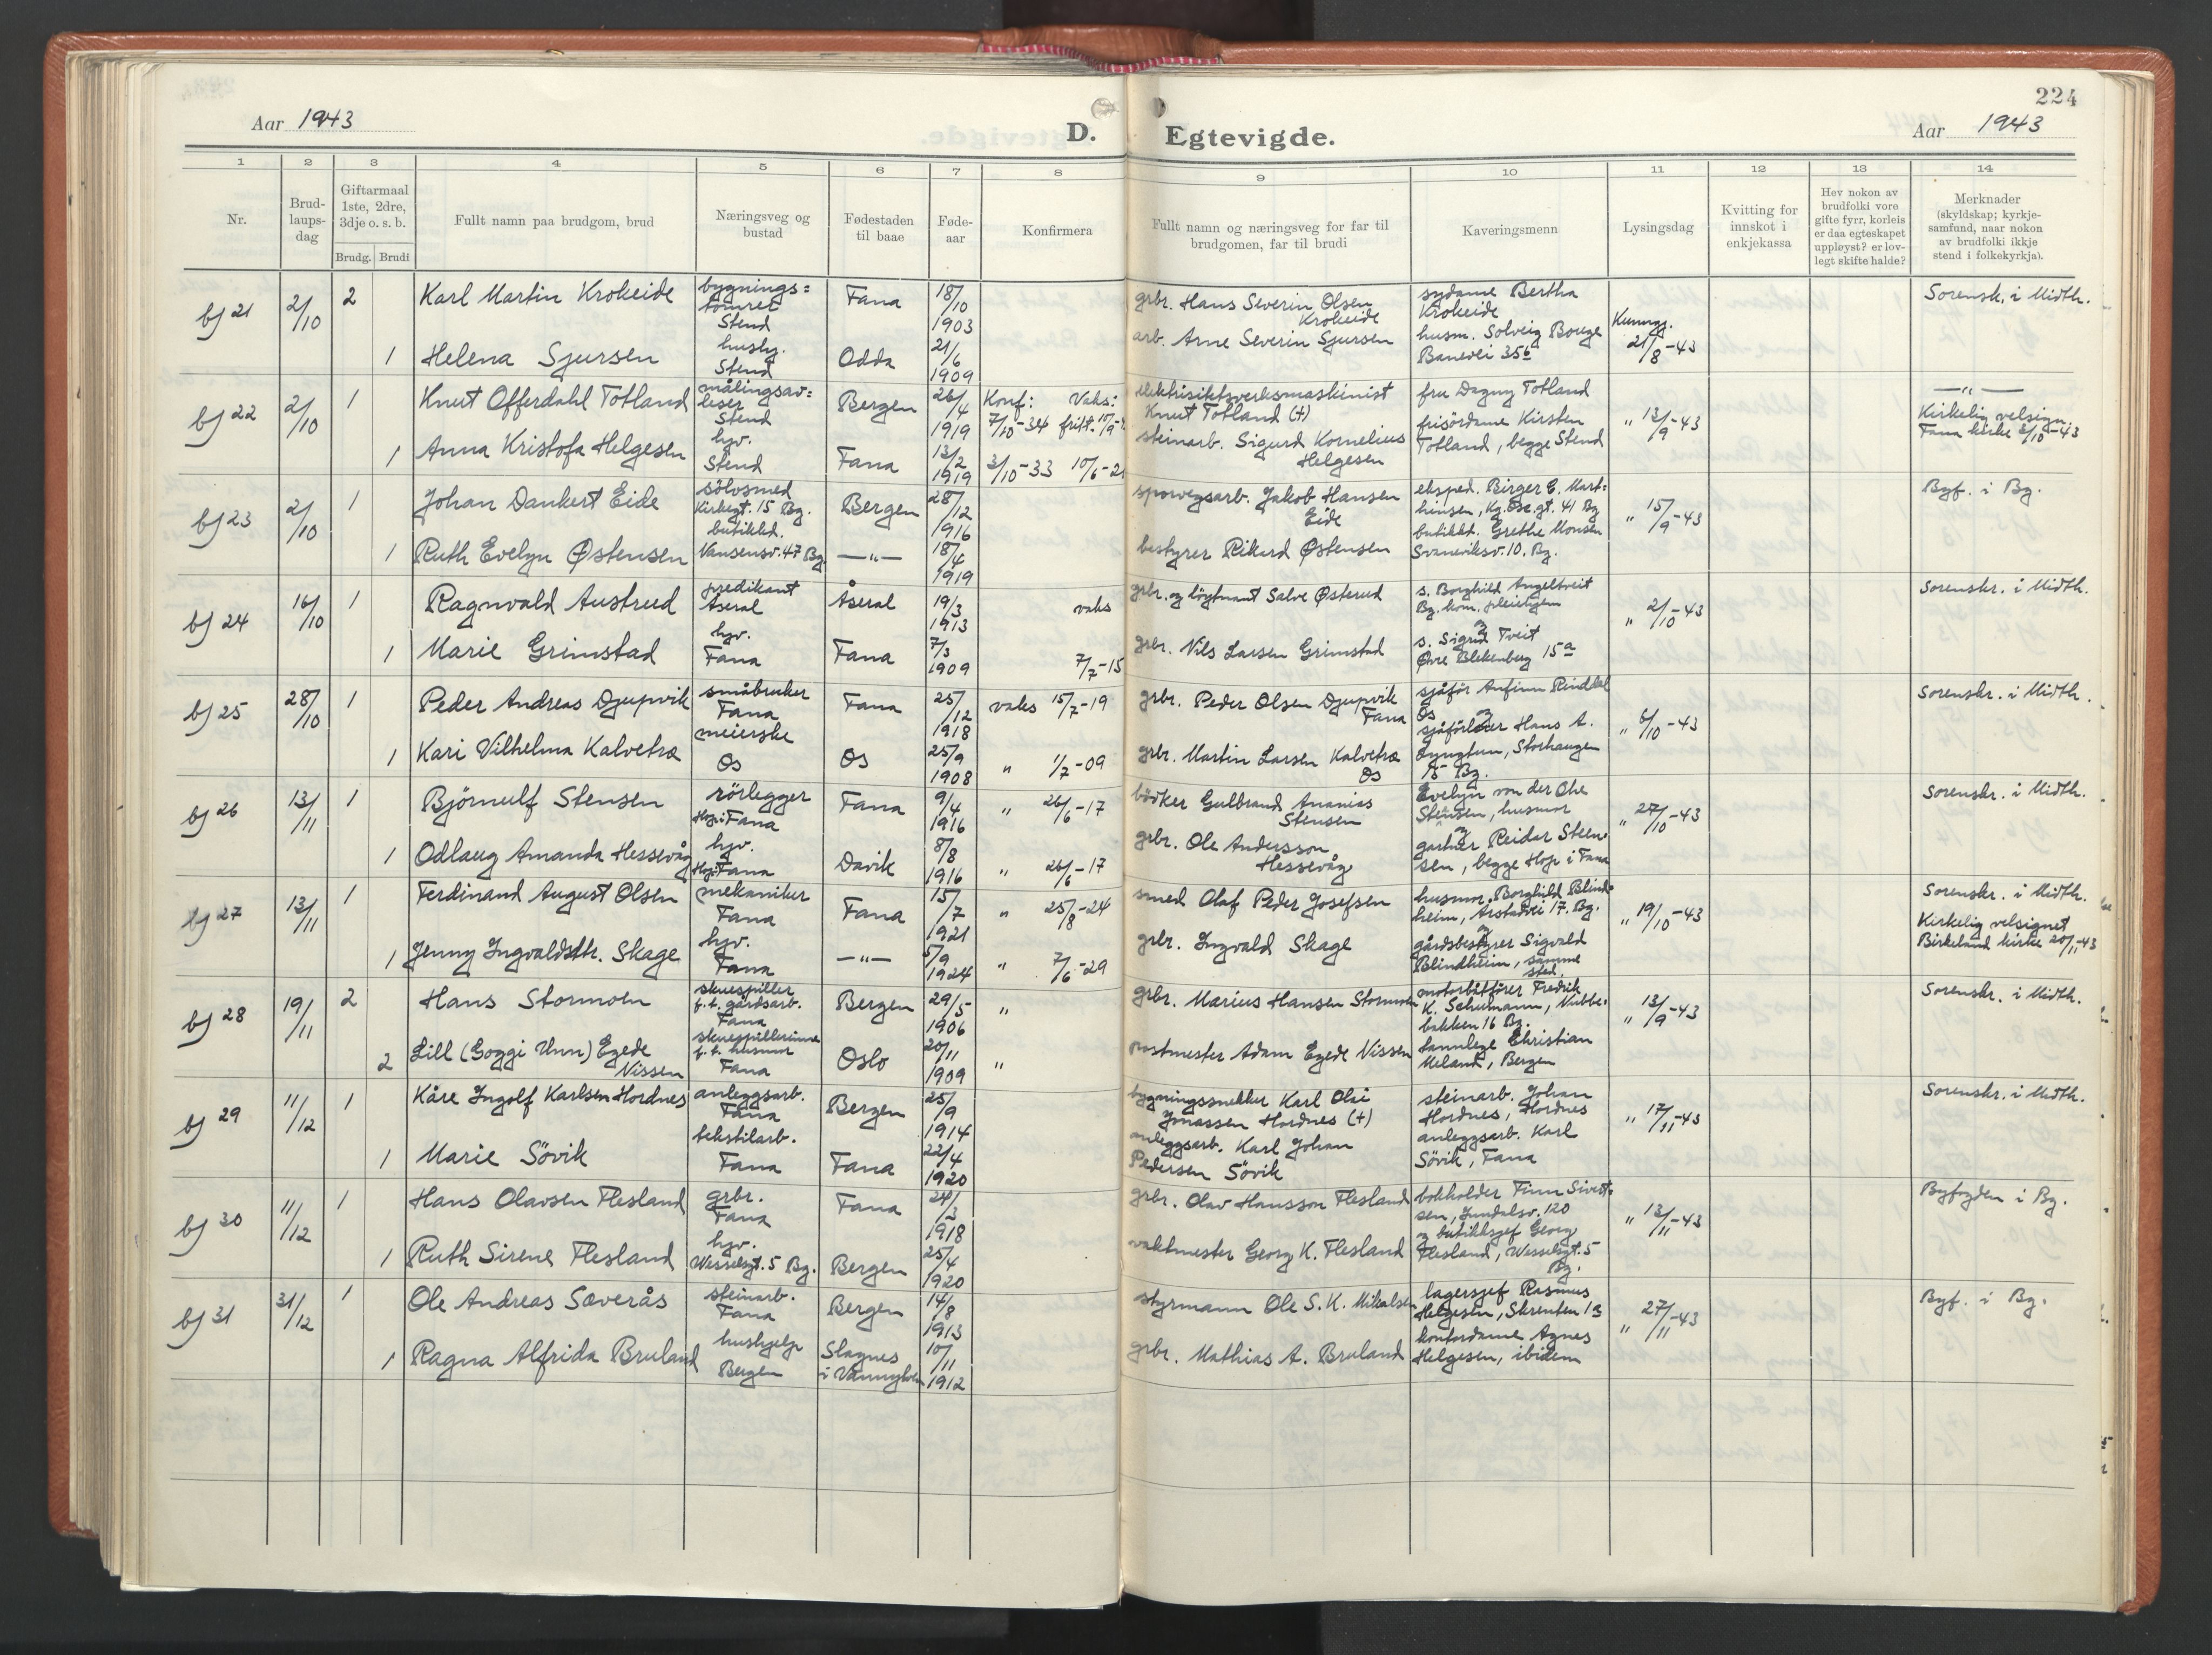 224
Aar 1943
D. Egtevigde.
Aar 1943
1 2 3 4 5 6 7 8 9 10 11 12 13 14
Nr.
Brud-
laups-
dag
Giftarmaal
1ste, 2dre,
3dje o. s. b.
Brudg. Brudi
Fullt namn paa brudgom, brud
Næringsveg og
bustad
Fødestaden
til baae
Føde-
aar
Konfirmera
Fullt namn og næringsveg for far til
brudgomen, far til brudi
Kaveringsmenn
Lysingsdag
Kvitting for
innskot i
enkjekassa
Hev nokon av
brudfolki vore
gifte fyrr, korleis
er daa egteskapet
uppløyst? er lov-
legt skifte halde?
Merknader
(skyldskap; kyrkje-
samfund, naar nokon
av brudfolki ikkje
stend i folkekyrkja).
bj 21 2/10 2 Karl Martin Krokeide bygnings=
tömrer
Stend Fana 18/10 1903 grbr. Hans Severin Olsen
Krokeide sydame Bertha
Krokeide Kunngj. 21/8-43 Sorensk. i Midth.
1 Helena Sjursen hush.
Stend Odda 21/6 1909 arb. Arne Severin Sjursen husm. Solveig Bouge
Banevei 35b
bj 22 2/10 1 Knut Offerdahl Totland målingsav=
leser
Stend Bergen 26/4 1919 Konf: 7/10-34 Vaks: elektrisitetsverksmaskinist
Knut Totland (+) fru Dagny Totland
frisördame Kirsten
Totland, begge Stend " 13/9-43 —"—
Kirkelig velsign.
Fana kirke 3/10-43
1 Anna Kristofa Helgesen hjv.
Stend Fana 13/2 1919 3/10-33 steinarb. Sigurd Kornelius
Helgesen
bj 23 2/10 1 Johan Dankert Eide sölvsmed
Kirkegt. 15 Bg. Bergen 28/12 1916 sporvegsarb. Jakob Hansen
Eide eksped. Birger E. Mart=
hinsen, Kg. Osc. gt. 41 Bg
butikkd. Grethe Monsen
Svaneviksv. 10. Bg. " 15/9-43 Byf. i Bg.
1 Ruth Evelyn Østensen butikkd.
Nansensv. 47 Bg. —"— 18/4 1919 bestyrer Rikard Østensen
bj 24 16/10 1 Ragnvald Austrud predikant
Åseral Åseral 19/3 1913 vaks grbr. og löytnant Salve Østerud s. Borghild Angeltveit
Bg. kom. pleiehjem
og
s. Sigrid Tveit
Øvre Blekenberg 15a " 2/10-43 Sorenskr. i Midth.
1 Marie Grimstad hjv.
Fana Fana 7/3 1909 7/7-15 grbr. Nils Larsen Grimstad
bj 25 28/10 1 Peder Andreas Djupvik småbruker
Fana Fana 25/12 1918 vaks 15/7-19 grbr. Peder Olsen Djupvik
Fana sjåför Anfinn Rinddal
Os og
sjåförlærer Hans A.
Lyngtun, Storhaugen
15 Bg. " 6/10-43 Sorenskr. i Midth.
1 Kari Vilhelma Kalvetræ meierske
Os Os 25/9 1908 " 1/7-09 grbr. Martin Larsen Kalvetræ
Os
bj 26 13/11 1 Björnulf Stensen rörlegger
Hop i Fana Fana 9/4 1916 " 26/6-17 bödker Gulbrand Ananias
Stensen Evelyn von der Ohe
Stensen, husmor
og
gartner Reidar Steen=
sen, begge Hop i Fana " 27/10-43 Sorenskr. i Midth.
1 Odlaug Amanda Hessevåg hjv.
Hop i Fana Davik 8/8 1916 " 26/6-17 grbr. Ole Andersson
Hessevåg
bj 27 13/11 1 Ferdinand August Olsen mekaniker
Fana Fana 15/7 1921 " 25/8-24 smed Olaf Peder Josefsen husmor Borghild Blind=
heim, Årstadvei 17. Bg.
og
gårdsbestyrer Sigvald
Blindheim, samme
sted. " 19/10-43 Sorenskr. i Midth.
Kirkelig velsignet
Birkeland kirke 20/11-43
1 Jenny Ingvaldsdtr. Skage hjv.
Fana —"— 5/9 1924 " 7/6-29 grbr. Ingvald Skage
bj 28 19/11 2 Hans Stormoen skuespiller
f.t. gårdsarb.
Fana Bergen 29/5 1906 " grbr. Marius Hansen Stormoen motorbåtförer Fredrik
K. Schumann, Nubbe=
bakken 16 Bg.
tannlege Christian
Meland, Bergen " 13/9-43 Sorenskr. i Midth.
2 Lill (Goggi Unn) Egede
Nissen skuespillerinne
f.t. husmor
Fana Oslo 20/11 1909 " postmester Adam Egede Nissen
bj 29 11/12 1 Kåre Ingolf Karlsen Hordnes anleggsarb.
Fana Bergen 25/9 1914 bygningssnekker Karl Olai
Jonassen Hordnes (+) steinarb. Johan
Hordnes, Hordnes
anleggsarb. Karl
Sövik, Fana " 17/11-43 Sorenskr. i Midth.
1 Marie Sövik tekstilarb.
Fana Fana 22/4 1920 anleggsarb. Karl Johan
Pedersen Sövik
bj 30 11/12 1 Hans Olavsen Flesland grbr.
Fana Fana 24/3 1918 grbr. Olav Hansson Flesland bokholder Finn Sivert=
sen, Jundalsv. 120
og butikksjef Georg
Flesland, Wesselsgt. 5
Bg. " 13/11-43 Byfogden i Bg.
1 Ruth Sirene Flesland hjv.
Wesselsgt. 5 Bg. Bergen 25/4 1920 vaktmester Georg K. Flesland
bj 31 31/12 1 Ole Andreas Sæverås steinarb.
Fana Bergen 14/8 1913 styrmann Ole S. K. Mikalsen lagersjef Rasmus
Helgesen, Skrenten 13
kontordame Agnes
Helgesen, ibidem " 27/11-43 Byf. i Bg.
1 Ragna Alfrida Bruland hushjelp
Bergen Slagnes
i Vannylven 10/11 1912 grbr. Mathias A. Bruland